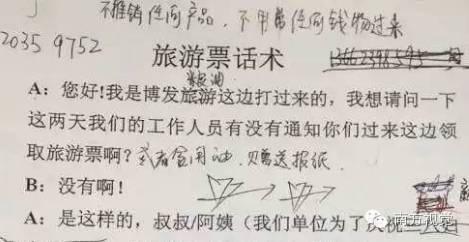 不推销任何产品、不用带任何钱物过来
2035 9752
旅游票话术
粮油
A：您好!我是博发旅游这边打过来的，我想请问一下
这两天我们的工作人员有没有通知你们过来这边领
取旅游票啊？或者食用油、赠送报纸
B：没有啊！
A：是这样的，叔叔/阿姨（我们单位为了庆祝三八妇
南方视窗